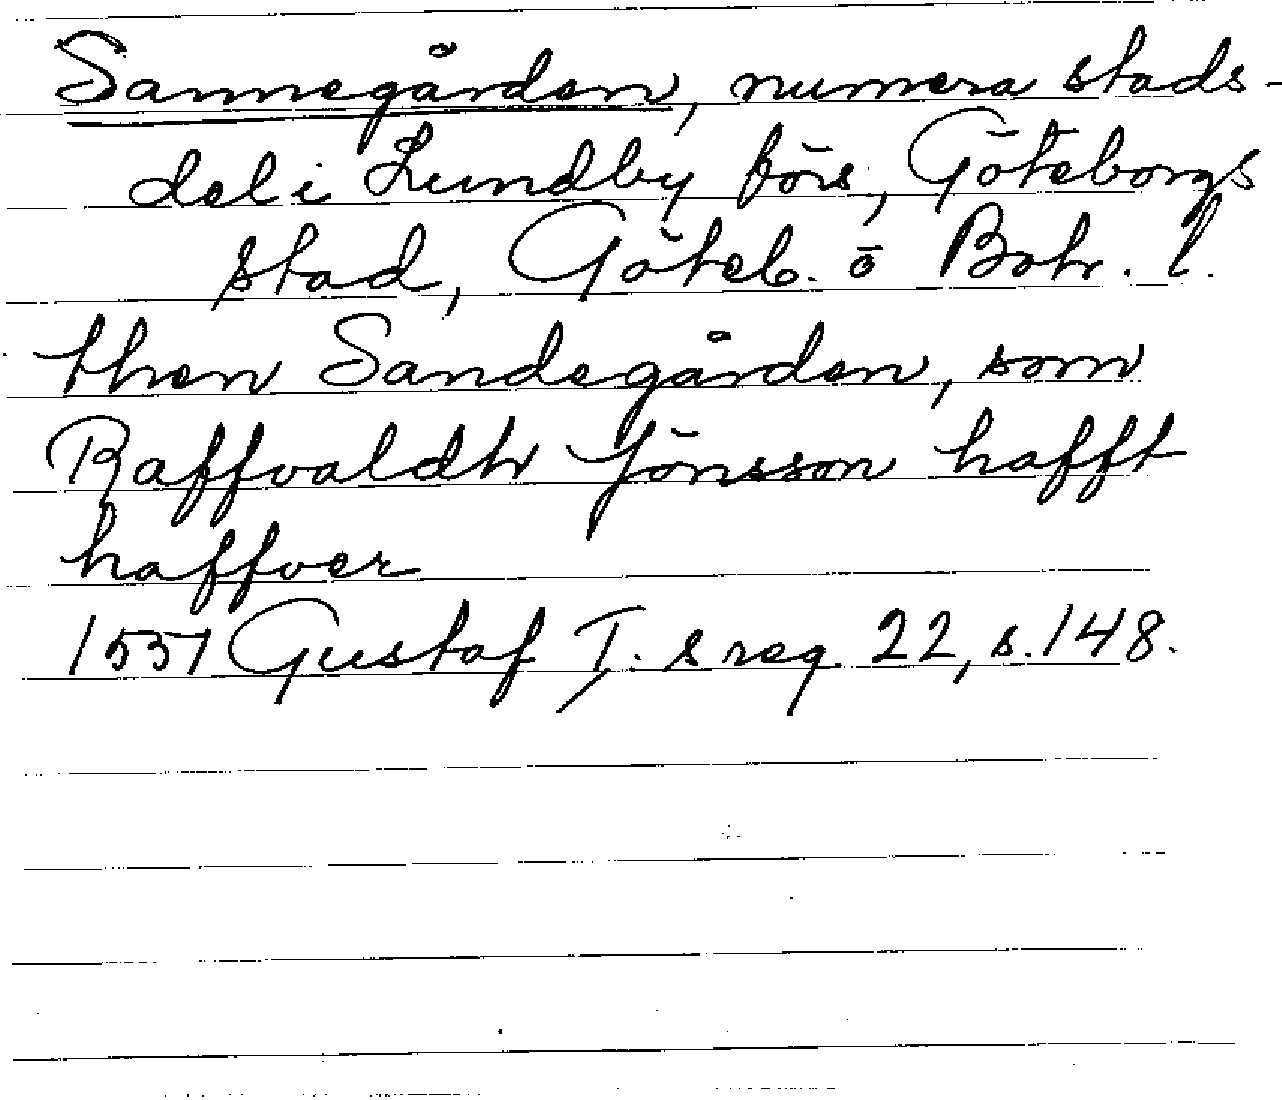 Sannegården, numera stads-
del i Lundby förs, Göteborgs
stad, Göteb. o Boh. l.
then Sandegården, som
Raffvaldh Jönsson hafft
haffver
1551 Gustaf I. s reg 22, s. 148.